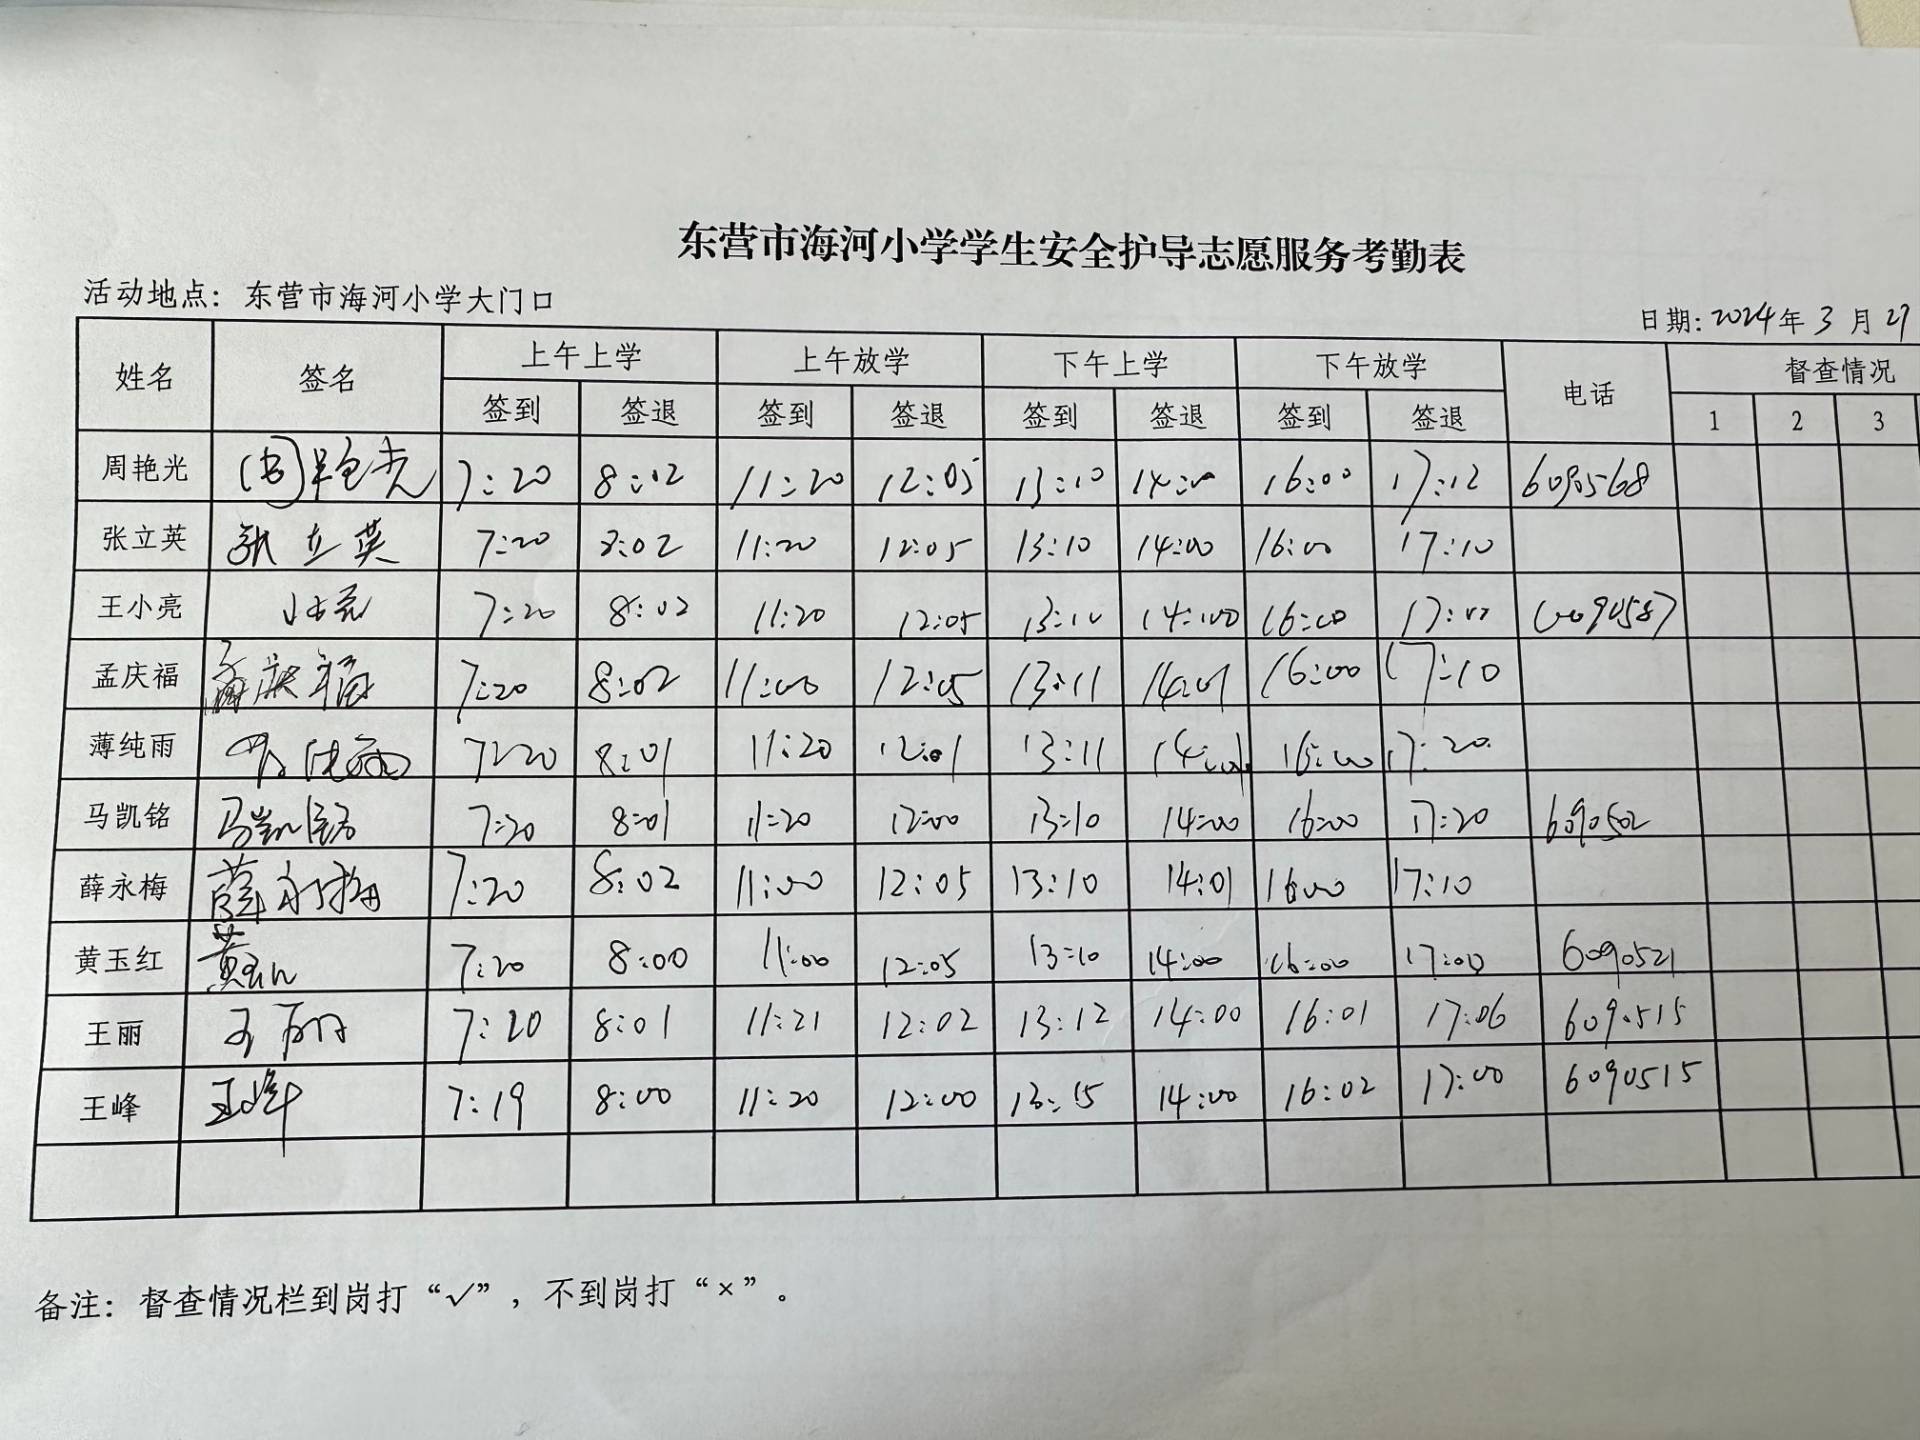 东营市海河小学学生安全护导志愿服务考勤表
活动地点：东营市海河小学大门口
日期：2024年3月27
姓名 签名 上午上学 上午放学 下午上学 下午放学 电话 督查情况
签到 签退 签到 签退 签到 签退 签到 签退 1 2 3
周艳光 周艳光 7:20 8:02 11:20 12:05 13:10 14:00 16:00 17:12 6090568
张立英 张立英 7:20 8:02 11:20 12:05 13:10 14:00 16:00 17:10
王小亮 7:20 8:02 11:20 12:05 13:10 14:00 16:00 17:00 6090587
孟庆福 孟庆福 7:20 8:02 11:00 12:05 13:11 14:01 16:00 17:10
薄纯雨 薄纯雨 7:20 8:01 11:20 12:01 13:11 16:00 17:20
马凯铭 马凯铭 7:20 8:01 11:20 12:00 13:10 14:00 16:00 17:20 6090502
薛永梅 薛永梅 7:20 8:02 11:00 12:05 13:10 14:01 16:00 17:10
黄玉红 黄玉红 7:20 8:00 11:00 12:05 13:10 14:00 16:00 17:00 6090521
王丽 王丽 7:20 8:01 11:21 12:02 13:12 14:00 16:01 17:06 6090515
王峰 王峰 7:19 8:00 11:20 12:00 13:15 14:00 16:02 17:00 6090515
备注：督查情况栏到岗打“√”，不到岗打“×”。